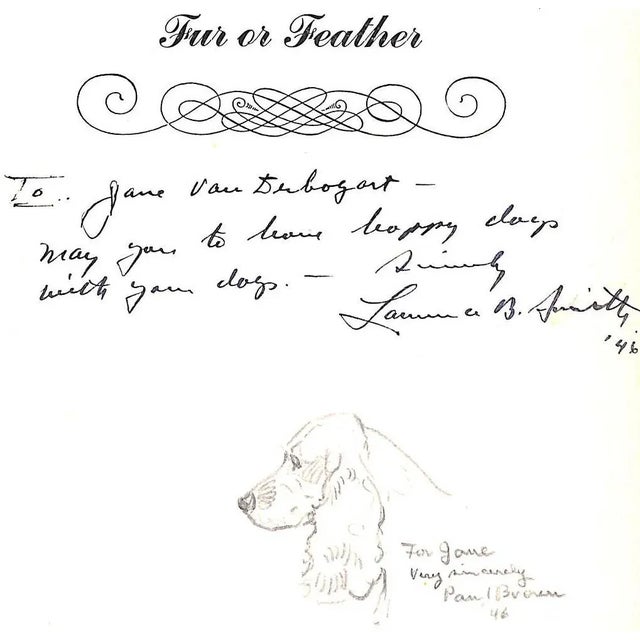 Fur or Feather
To.. Jane Van Derbogart —
may you to have happy days
with your dogs. — Sincerely
Lawrence B. Smith
'46
For Jane
Very sincerely
Paul Brown
46